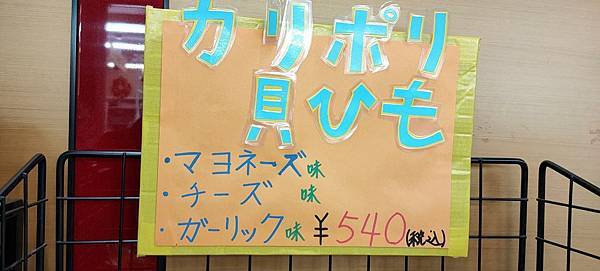 カリポリ
貝ひも
・マヨネーズ味
・チーズ 味
・ガーリック味 ¥540(税込)